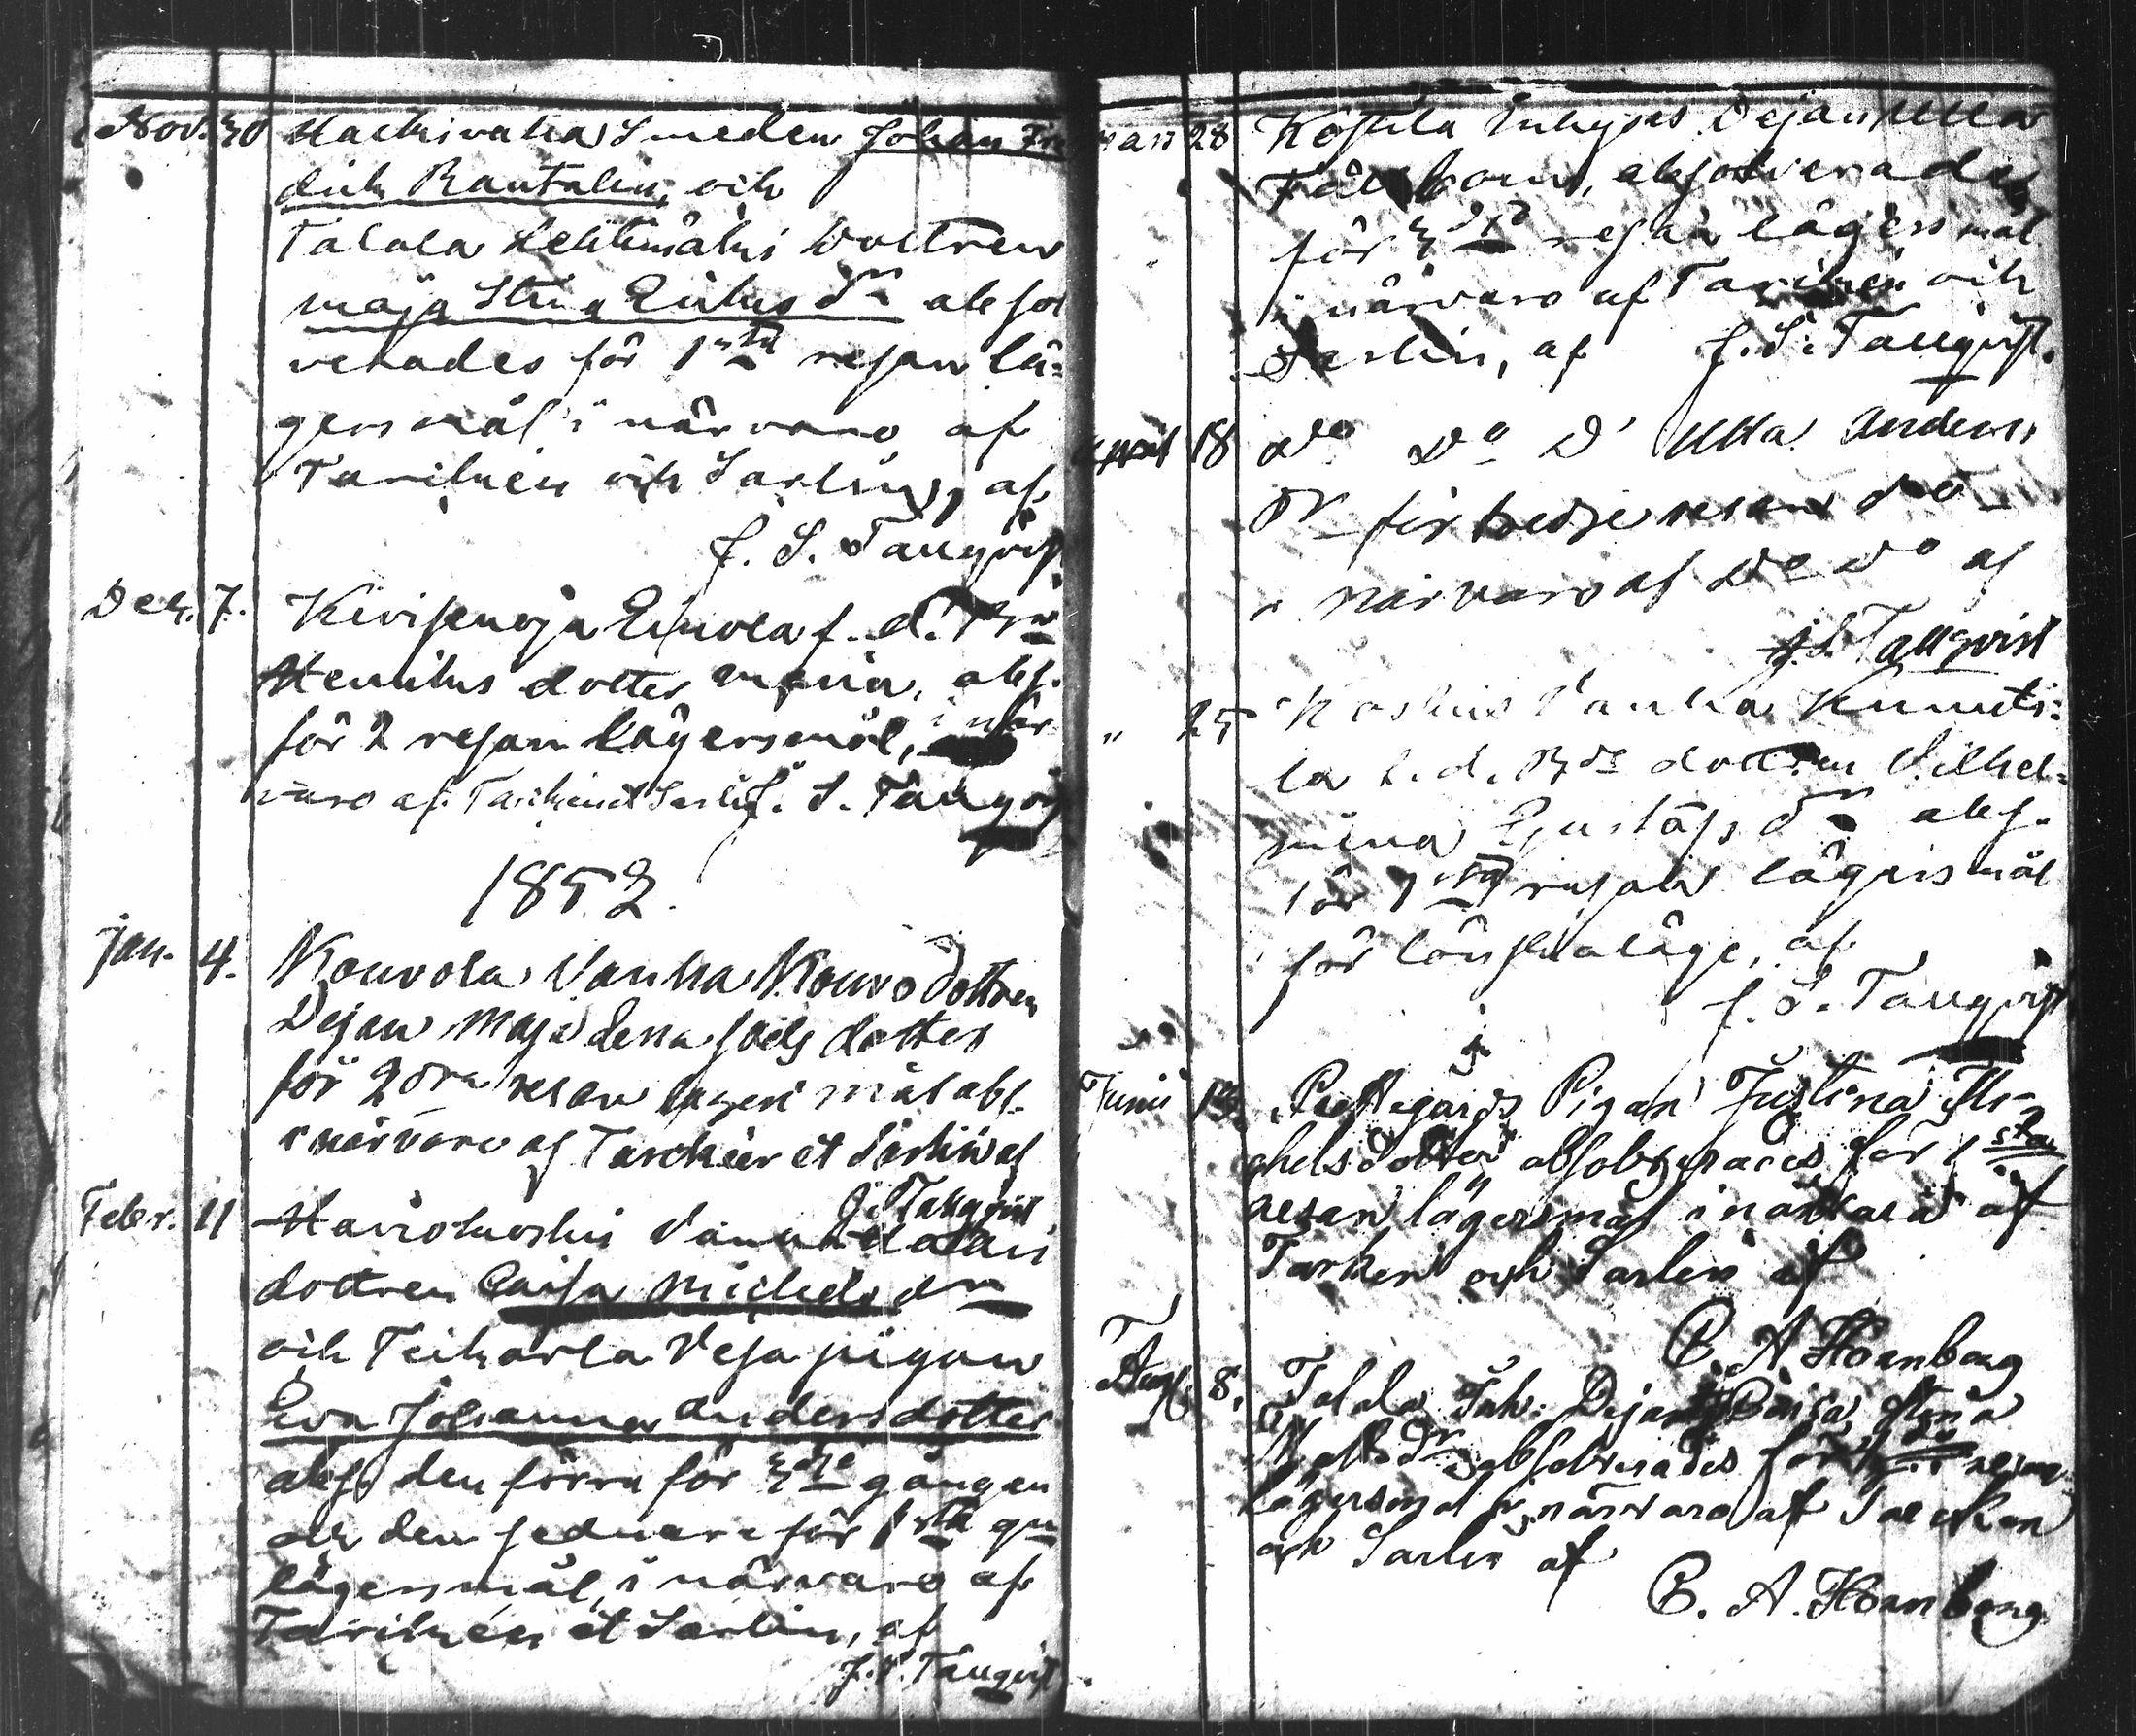 Nov. 30 Smeden Johan Fre
drik Rautalin, och
Talala Lehtimäki Dottren
Maja Stina Eriks dr absol
verades för 1sta resan lä-
gersmål i närvaro af
Tarchen och Sarlin, af
J. S. Tallqvist.
Dec. 7. Kivisenoja f. d.
Henriks dotter Maria, abs.
för 2 resan lägersmål, i när-
varo af Tarchen et Sarlin J. S. Tallqvist
1852.
Jan. 4. Kouvola Vanha Kouvo Dottren
Dejan Maja Lena Joels dotter
för 2dra resan lägersmål abs.
i närvaro af Tarchen et Sarlin af
J. Tallqvist
Febr. 11
dottren Caisa Michels dr
och Teikarla Vesa pigan
Eva Johanna Andersdotter
abs. den förra för 3dje gången
och den sednare för 1sta gn
lägersmål, i närvaro af
Tarchen et Sarlin, af
J. S. Tallqvist
Mars 28 Inhyses Dejan Ulla
absolverades
för 3dje resan lägersmål
i närvaro af Tarchen och
Sarlin, af J. S. Tallqvist.
April 18 Do Do D Ulla Anders
dr för tredje resan do
i närvaro af Do Do af
J. S. Tallqvist
" 25 Koskis Vanha Knuuti-
la f. d. Bds dottren Vilhel-
mina Gustafs dr abs.
för 1sta resan lägersmål
för lönskaläge, af
J. S. Tallqvist
Junii 13. Prestegårds Pigan Justina Mi-
chelsdotter absolverades för 1sta
resan lägersmål i närvaro af
Tarken och Sarlin af
C. A. Hornborg
Aug. 8. Talala Inh: Dejan Caisa Stina
Matts dr absolverades för resan
lägersmål i närvaro af Tarcken
och Sarlin af
C. A. Hornborg